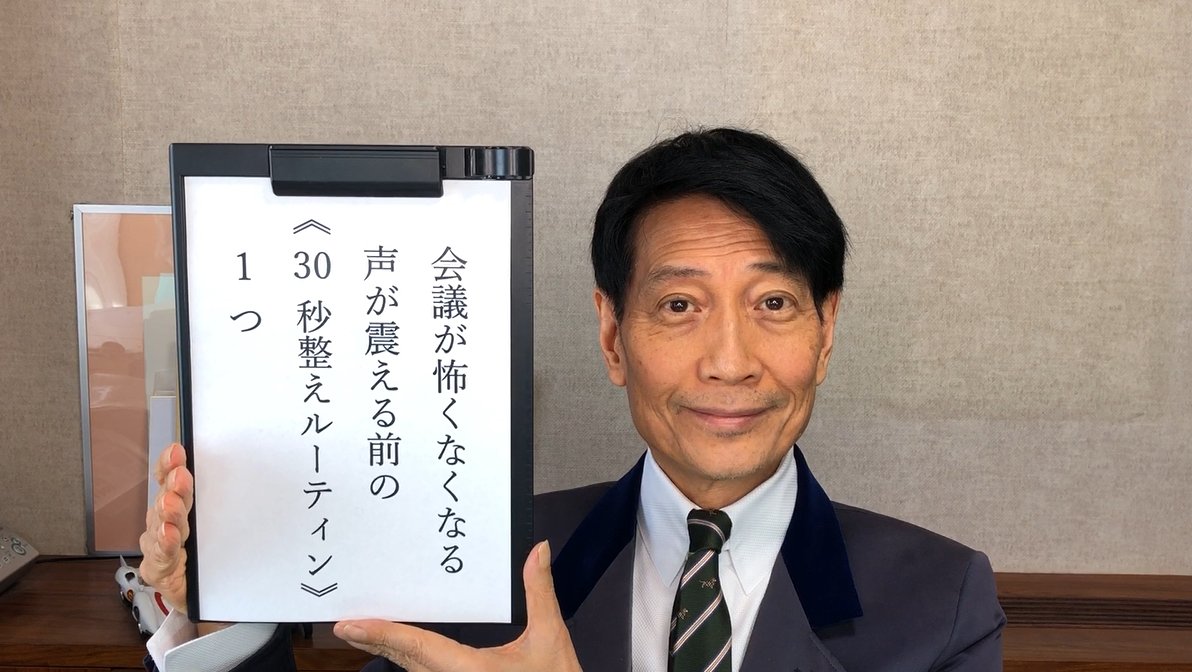 会議が怖くなくなる
声が震える前の
《30 秒整えルーティン》
1つ